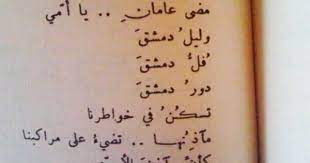 مضى عامانِ .. يا أمّي
وليلُ دمشقَ
فُلُّ دمشقَ
دورُ دمشقَ
تسكنُ في خواطرنا
مآذنُها .. تضيءُ على مراكبنا
كأنَّ مآذنَ